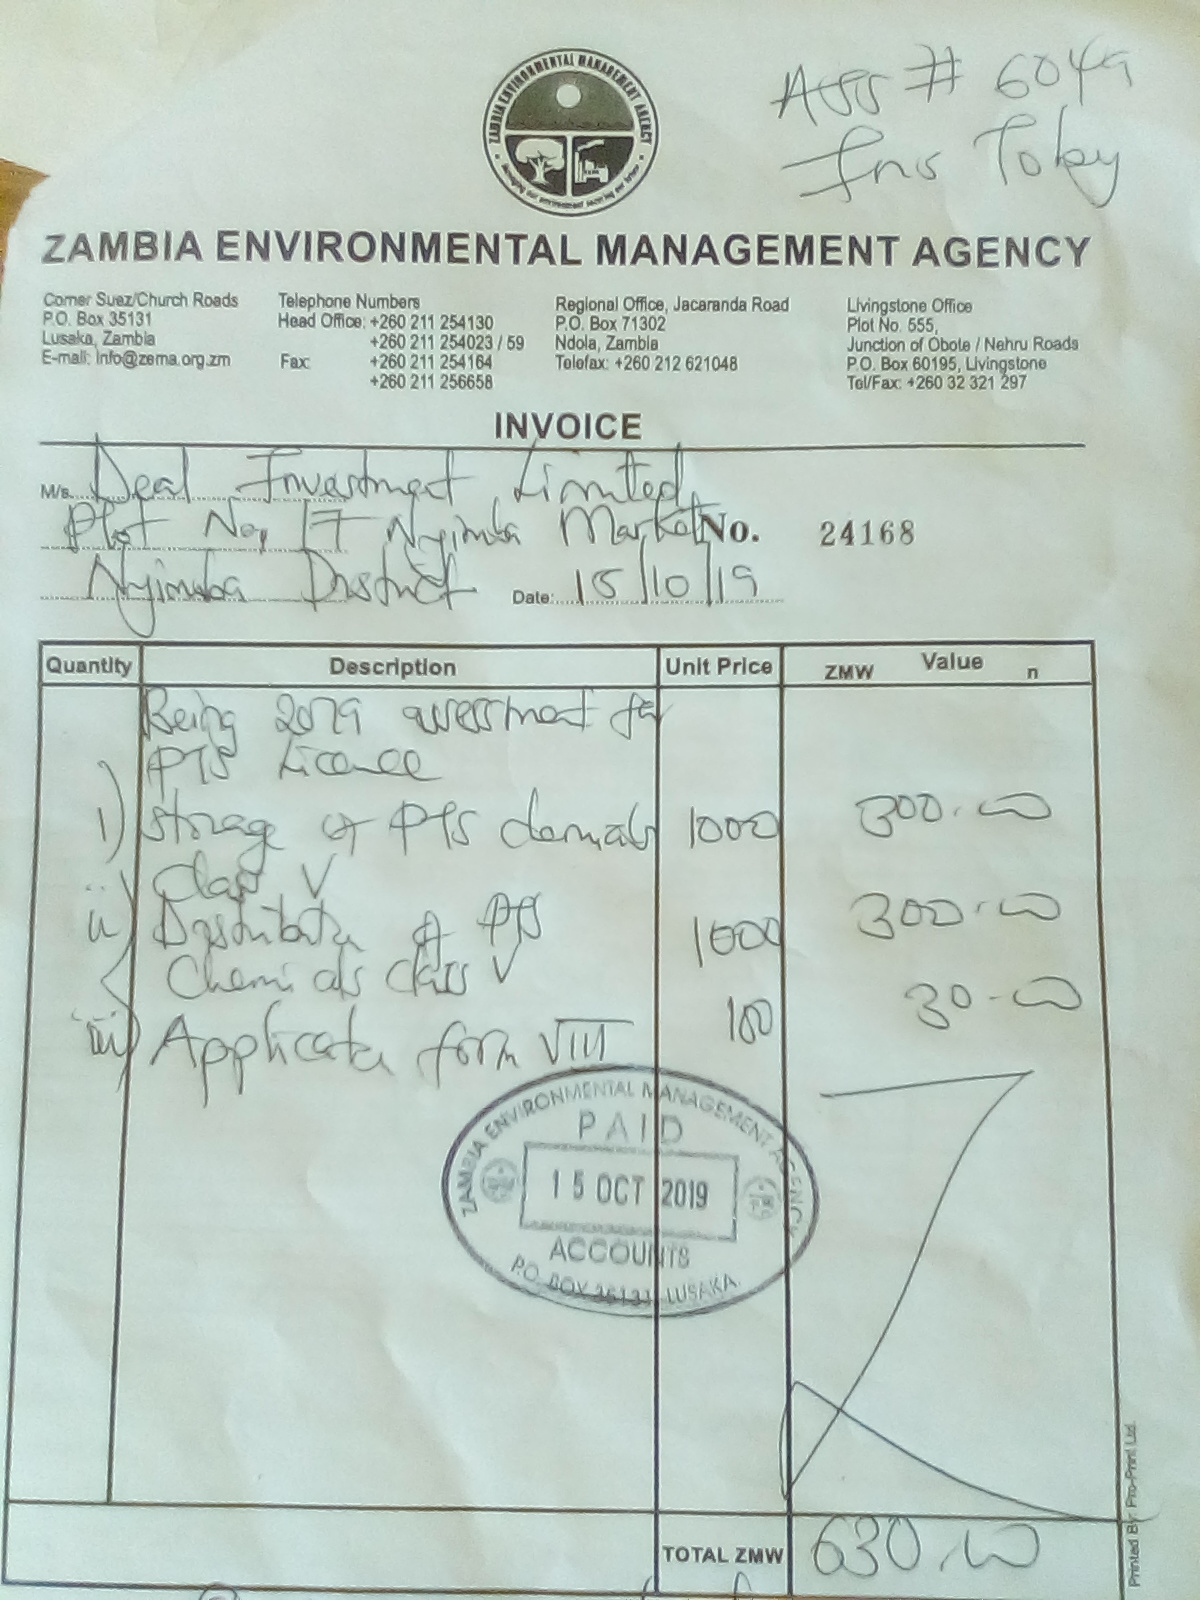 ZAMBIA ENVIRONMENTAL MANAGEMENT AGENCY
Ass # 6049
Ins Toby
ZAMBIA ENVIRONMENTAL MANAGEMENT AGENCY
Corner Suez/Church Roads
P.O. Box 35131
Lusaka, Zambia
E-mail: Info@zema.org.zm
Telephone Numbers
Head Office: +260 211 254130
+260 211 254023 / 59
Fax: +260 211 254164
+260 211 256658
Regional Office, Jacaranda Road
P.O. Box 71302
Ndola, Zambia
Telefax: +260 212 621048
Livingstone Office
Plot No. 555,
Junction of Obote / Nehru Roads
P.O. Box 60195, Livingstone
Tel/Fax: +260 32 321 297
INVOICE
M/s. Deal Investment Limited,
Plot No, 17 Nyimba Market
No. 24168
Nyimba District
Date: 15/10/19
Quantity Description Unit Price ZMW Value n
Being 2019 assessment for
PTS Licence
i) Storage of PTS 1000 300.00
Class V
ii) Distribution of PTS 1000 300.00
Chemicals class V
iii) Application form VIII 100 30.00
ZAMBIA ENVIRONMENTAL MANAGEMENT AGENCY
PAID
15 OCT 2019
ACCOUNTS
P.O. BOX 35131 LUSAKA
TOTAL ZMW 630.00
Printed By Pro-Print Ltd.